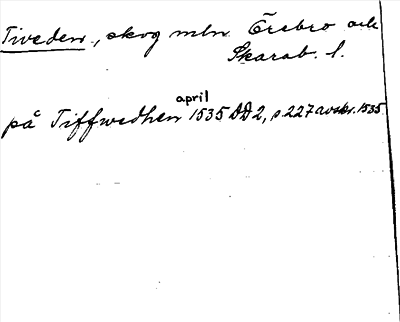 Tiveden, skog mln Örebro och
Skarab. l.
april
på Tiffwedhen 1535 DD2, s.227 avskr. 1535